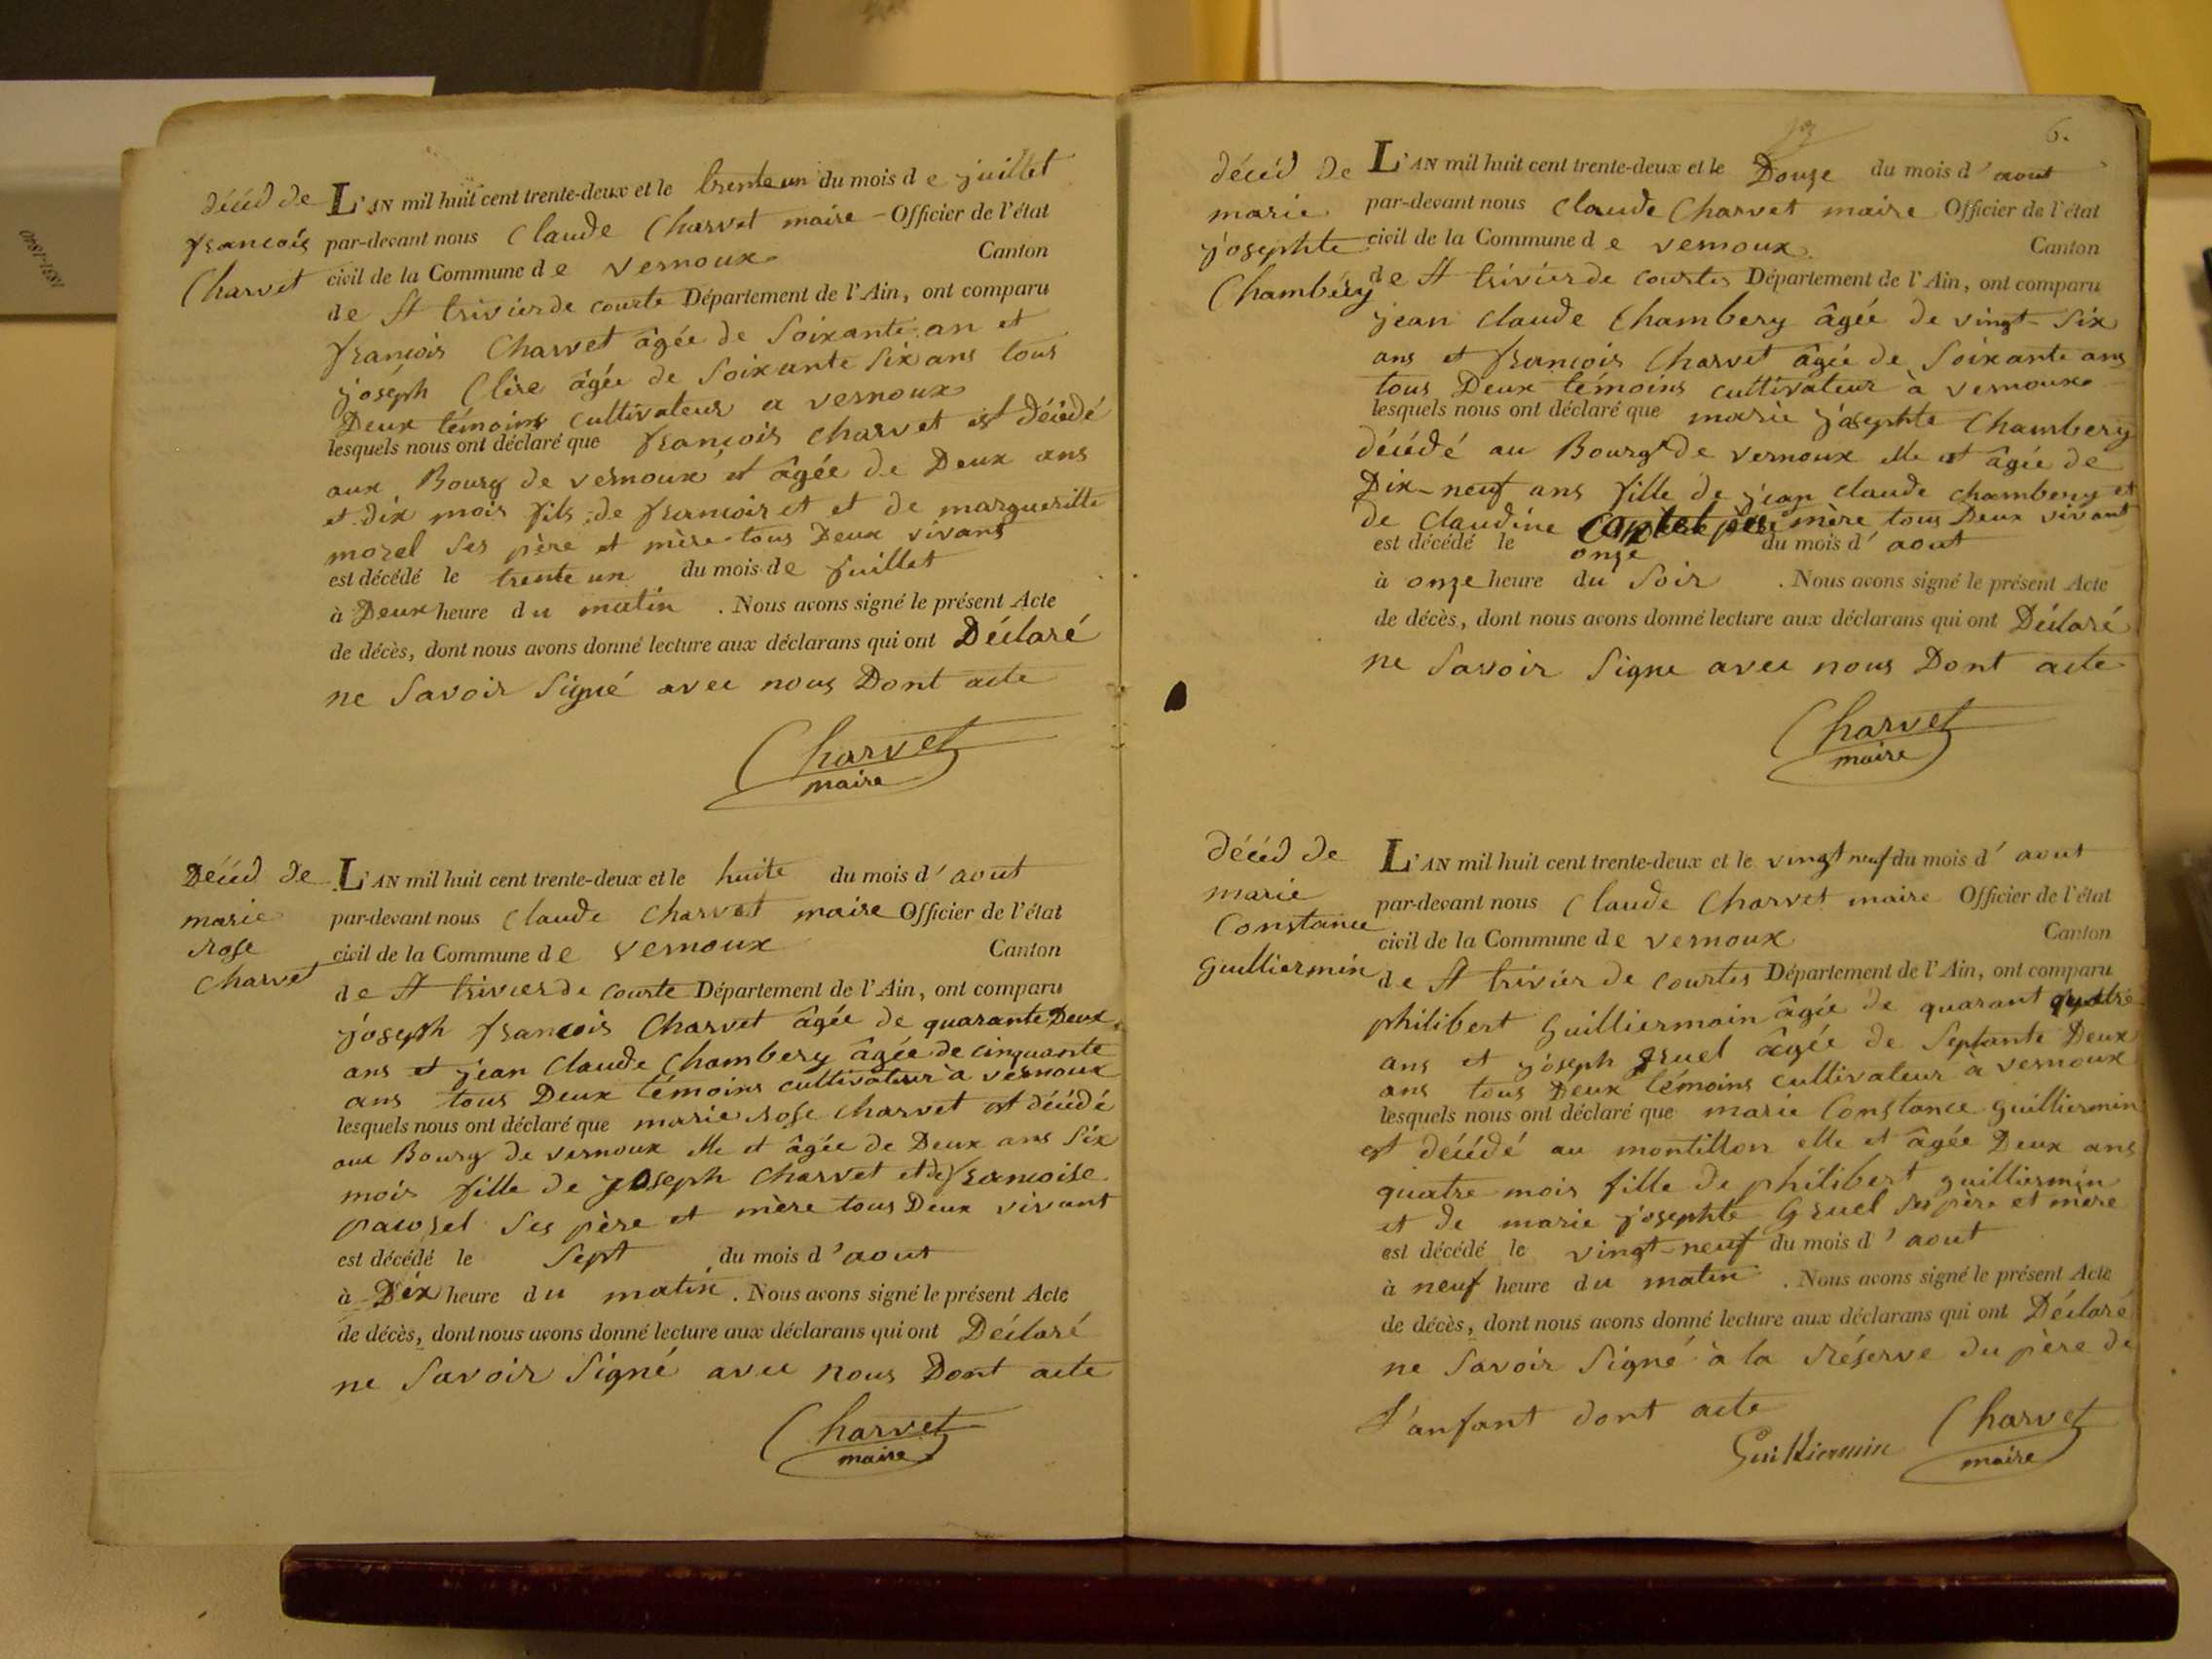 décéd de
françois
Charvet
L'AN mil huit cent trente-deux et le trente un du mois de juillet
par-devant nous Claude Charvet maire - Officier de l'état
civil de la Commune de vernoux Canton
de St trivierde courte Département de l'Ain, ont comparu
françois Charvet âgée de Soixante an et
joséph Clère âgée de Soixante Six ans tous
Deux témoins cultivateur a vernoux
lesquels nous ont déclaré que françois charvet est décédé
aux Bourg de vernoux et âgée de Deux ans
et dix mois fils de francois et et de margueritte
morel Ses père et mère tous Deux vivans
est décédé le trente un du mois de juillet
à Deux heure du matin . Nous avons signé le présent Acte
de décès, dont nous avons donné lecture aux déclarans qui ont Déclaré
ne Savoir Signé avec nous Dont acte
Charvet
maire
Décéd de
marie
rose
charvet
L'AN mil huit cent trente-deux et le huite du mois d'aout
par-devant nous Claude Charvet maire Officier de l'état
civil de la Commune de vernoux Canton
de St trivierde courte Département de l'Ain, ont comparu
joseph francois Charvet âgée de quarante Deux
ans et jean Claude Chambery âgée de cinquante
ans tous Deux témoins cultivateur a vernoux
lesquels nous ont déclaré que marie rose charvet est décédé
aux Bourg de vernoux elle et âgée de Deux ans Six
mois fille de joseph Charvet et de francoise
Ses père et mère tous Deux vivant
est décédé le Sept du mois d'aout
à Dix heure du matin . Nous avons signé le présent Acte
de décès, dont nous avons donné lecture aux déclarans qui ont Déclaré
ne Savoir Signé avec nous Dont acte
Charvet
maire
6.
décéd de
marie
josephte
Chambéry
L'AN mil huit cent trente-deux et le Douze du mois d'aout
par-devant nous Claude Charvet maire Officier de l'état
civil de la Commune de vernoux Canton
de St trivierde courtes Département de l'Ain, ont comparu
jean claude Chambery âgée de vingt-Six
ans et françois Charvet âgée de Soixante ans
tous Deux témoins cultivateur à vernoux
lesquels nous ont déclaré que marie josephte Chambery
décédé au Bourg de vernoux elle et âgée de
Dix-neuf ans fille de jean claude chambery et
de claudine mère tous Deux vivant
est décédé le onze du mois d'aout
à onze heure du Soir . Nous avons signé le présent Acte
de décès, dont nous avons donné lecture aux déclarans qui ont Déclaré
ne Savoir Signe avec nous Dont acte
Charvet
maire
décéd de
marie
Constance
guilliermin
L'AN mil huit cent trente-deux et le vingt neuf du mois d'aout
par-devant nous Claude Charvet maire Officier de l'état
civil de la Commune de vernoux Canton
de St trivier de courtes Département de l'Ain, ont comparu
philibert guilliermain âgée de quarant quatre
ans et joseph gruel âgée de Septante Deux
ans tous Deux témoins cultivateur à vernoux
lesquels nous ont déclaré que marie Constance guilliermin
est décédé au montillon elle et âgée Deux ans
quatre mois fille de philibert guilliermin
et de marie josephte gruel Ses père et mère
est décédé le vingt-neuf du mois d'aout
à neuf heure du matin . Nous avons signé le présent Acte
de décès, dont nous avons donné lecture aux déclarans qui ont Déclaré
ne Savoir Signé à la réserve du père de
l'anfant dont acte
Guilliermin Charvet
maire